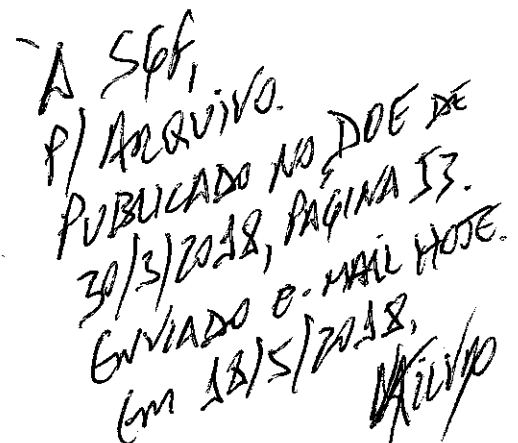 À SGF,
P/ ARQUIVO.
PUBLICADO NO DOE DE
30/3/2018, PÁGINA 53.
ENVIADO E-MAIL HOJE.
Em 18/5/2018,